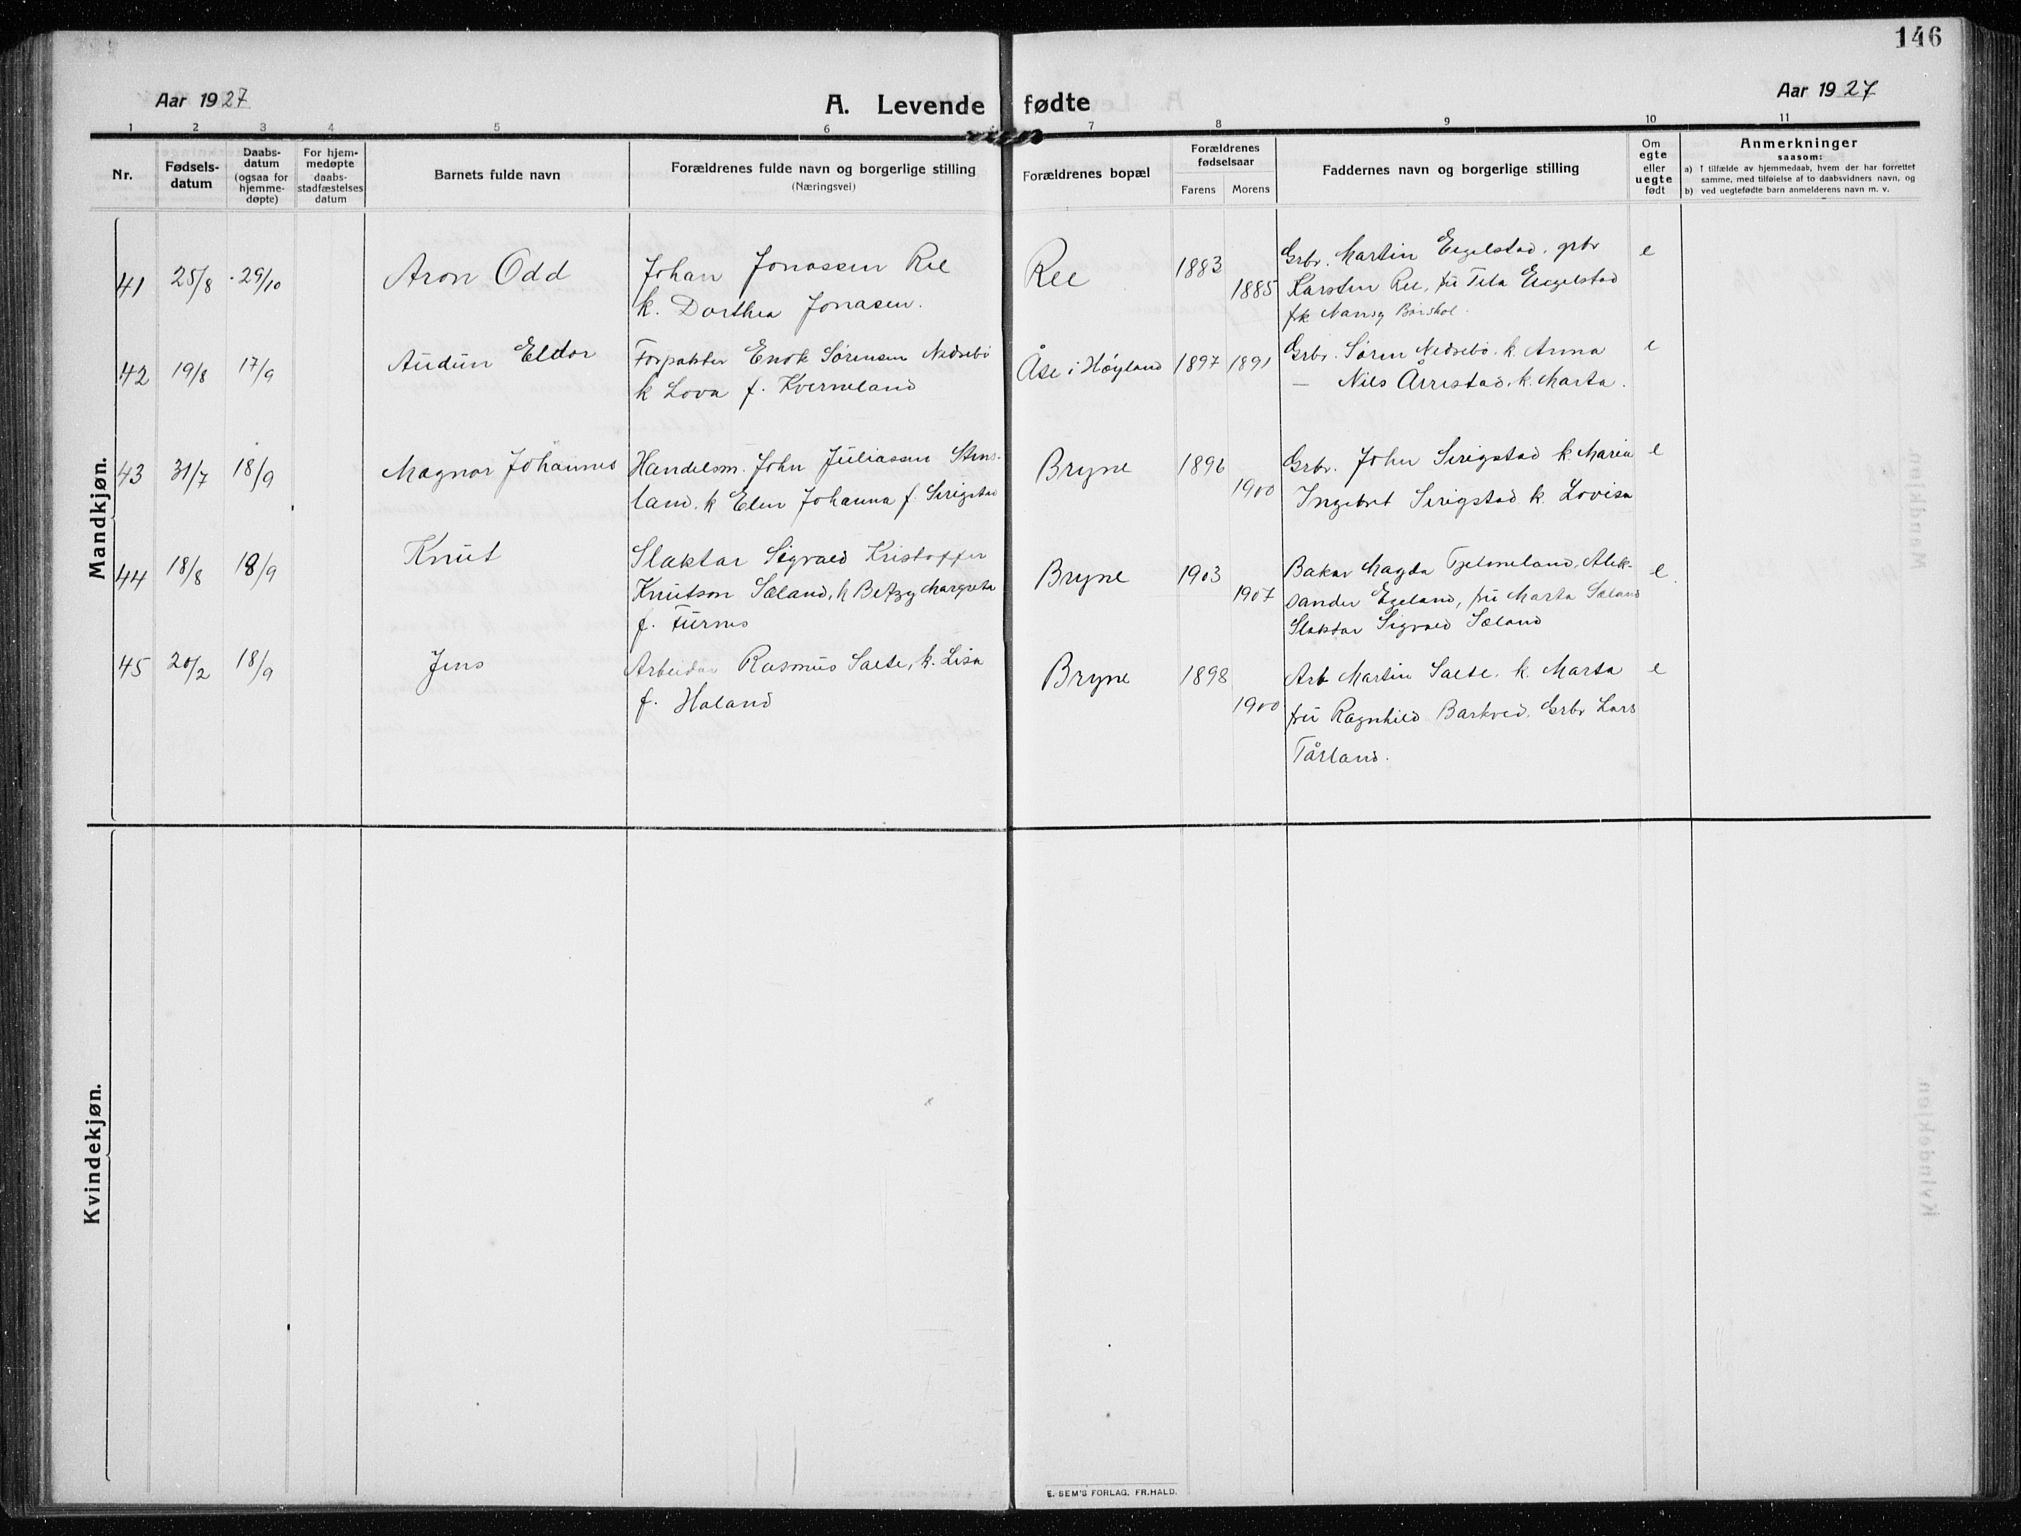 146
Aar 1927
A. Levende fødte
Aar 1927
1 2 3 4 5 6 7 8 9 10 11
Nr.
Fødsels-
datum
Daabs-
datum
(ogsaa for
hjemme-
døpte)
For hjem-
medøpte
daabs-
stadfæstelses
datum
Barnets fulde navn
Forældrenes fulde navn og borgerlige stilling
(Næringsvei)
Forældrenes bopæl
Forældrenes
fødselsaar
Farens Morens
Faddernes navn og borgerlige stilling
Om
egte
eller
uegte
født
Anmerkninger
saasom:
a) I tilfælde av hjemmedaab, hvem der har forrettet
samme, med tilføielse af to daabsvidners navn, og
b) ved uegtefødte barn anmelderens navn m. v.
Mandkjøn.
41 25/8 29/10 Aron Odd
Johan Jonassen Ree
k. Dorthea Jonasen.
Ree 1883
1885
Grbr. Martin Eigelstad, grbr
Karsten Ree, fru Tita Eigelstad
fk Nansy
e
42 19/8 17/9 Audun Eldor
Forpakter Enok Sørensen Nedrebø
k Lova f. Kverneland
Åse i Høyland 1897 1891
Grbr. Søren Nedrebø. k. Anna
— Nils Årrestad, k. Marta.
e
43 31/7 18/9 Magnar Johannes
Handelsm. John Juliassen Stens-
land. k Elen Johanna f. Serigstad
Bryne 1896
1900
Grbr. John Serigstad k. Maria
Ingebret Serigstad k. Lovisa
e
44 18/8 18/9 Knut
Slaktar Sigvald Kristoffer
Knutson Sæland, k Betzy Margreta
f. Furnes
Bryne 1903
1907
Bakar Magda Tjelmeland, Alek-
sander Egeland, fru Marta Sæland
Slaktar Sigvald Sæland
e
45 20/2 18/9 Jens
Arbeidar Rasmus Saete, k. Lisa
f. Haland
Bryne 1898
1900
Arb Martin Saete. k. Marta
fru Ragnhild Barkved, Grbr Lars
Tårland.
e
Kvindekjøn.
E. SEM'S FORLAG, FR.HALD.